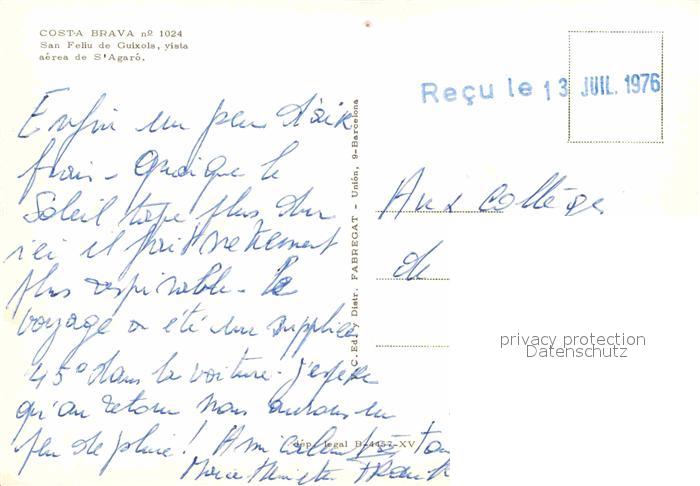 COSTA BRAVA nº 1024
San Feliu de Guixols, vista
aérea de S'Agaró.
Reçu le 13 JUIL. 1976
Enfin un peu d'air
frais - Quoique le
Soleil tape plus dur
ici il fait nettement
plus respirable - le
voyage a été un supplice
45° dans la voiture - j'espère
qu'au retour nous aurons un
peu de pluie !
C. Ed. y Distr. FABREGAT - Unión, 9-Barcelona
dép. legal B-4457-XV
Aux collègues
de
privacy protection
Datenschutz